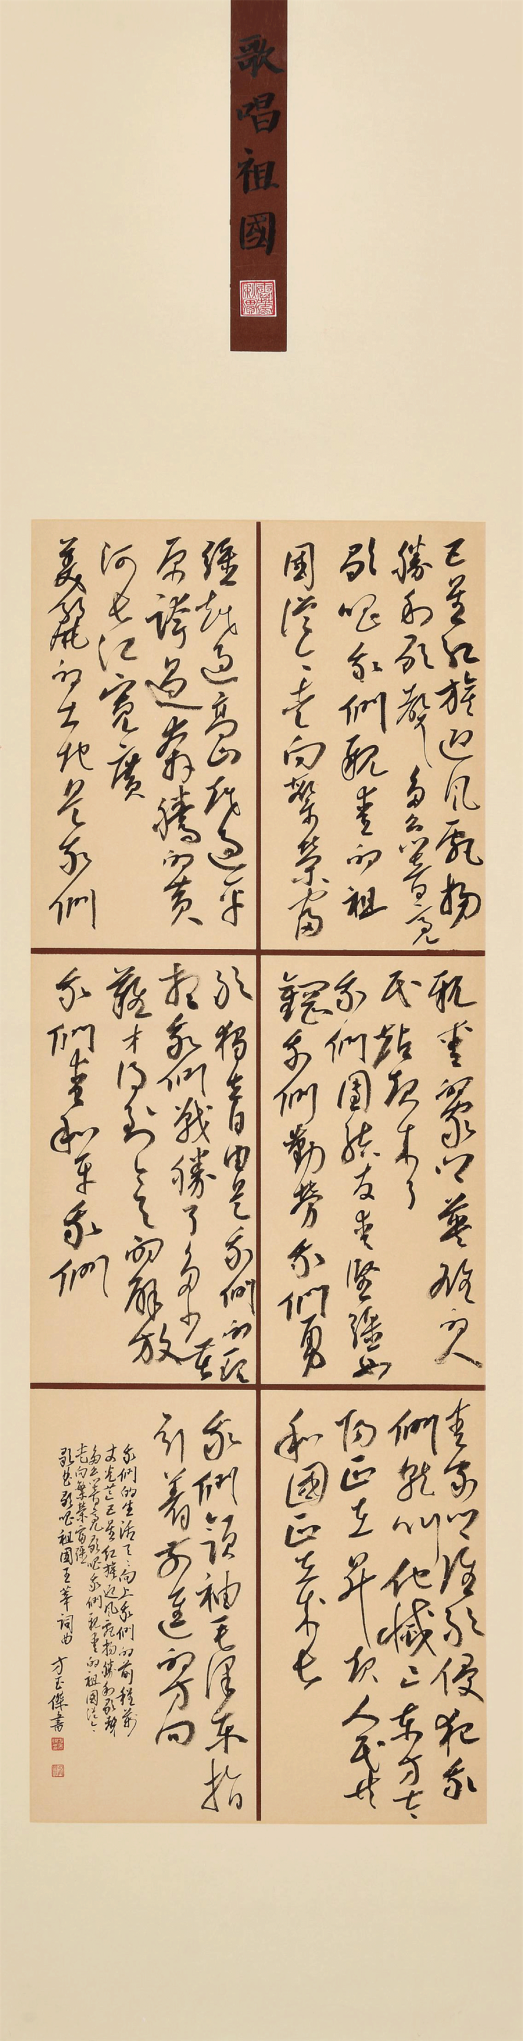 歌唱祖國
五星红旗迎风飘扬
勝利歌聲多么響亮
歌唱我們親愛的祖
國從今走向繁榮富
強越過高山越過平
原跨過奔騰的黄
河長江寬廣
美麗的土地是我們
親愛的家鄉英雄的人
民站起来了
我們團結友愛堅強如
鋼我們勤勞我們勇
敢獨立自由是我們的理
想我們戰勝了多少苦
難才得到今天的解放
我們愛和平我們
愛家鄉誰敢侵犯我
們就叫他滅亡東方太
陽正在升起人民共
和國正在成長
我們領袖毛澤東指
引着前進的方向
我們的生活天天向上我們的前程萬
丈光芒五星红旗迎风飘扬勝利歌聲
多么響亮歌唱我們親愛的祖國從今
走向繁榮富強
歌曲歌唱祖國王莘詞曲 方正傑書